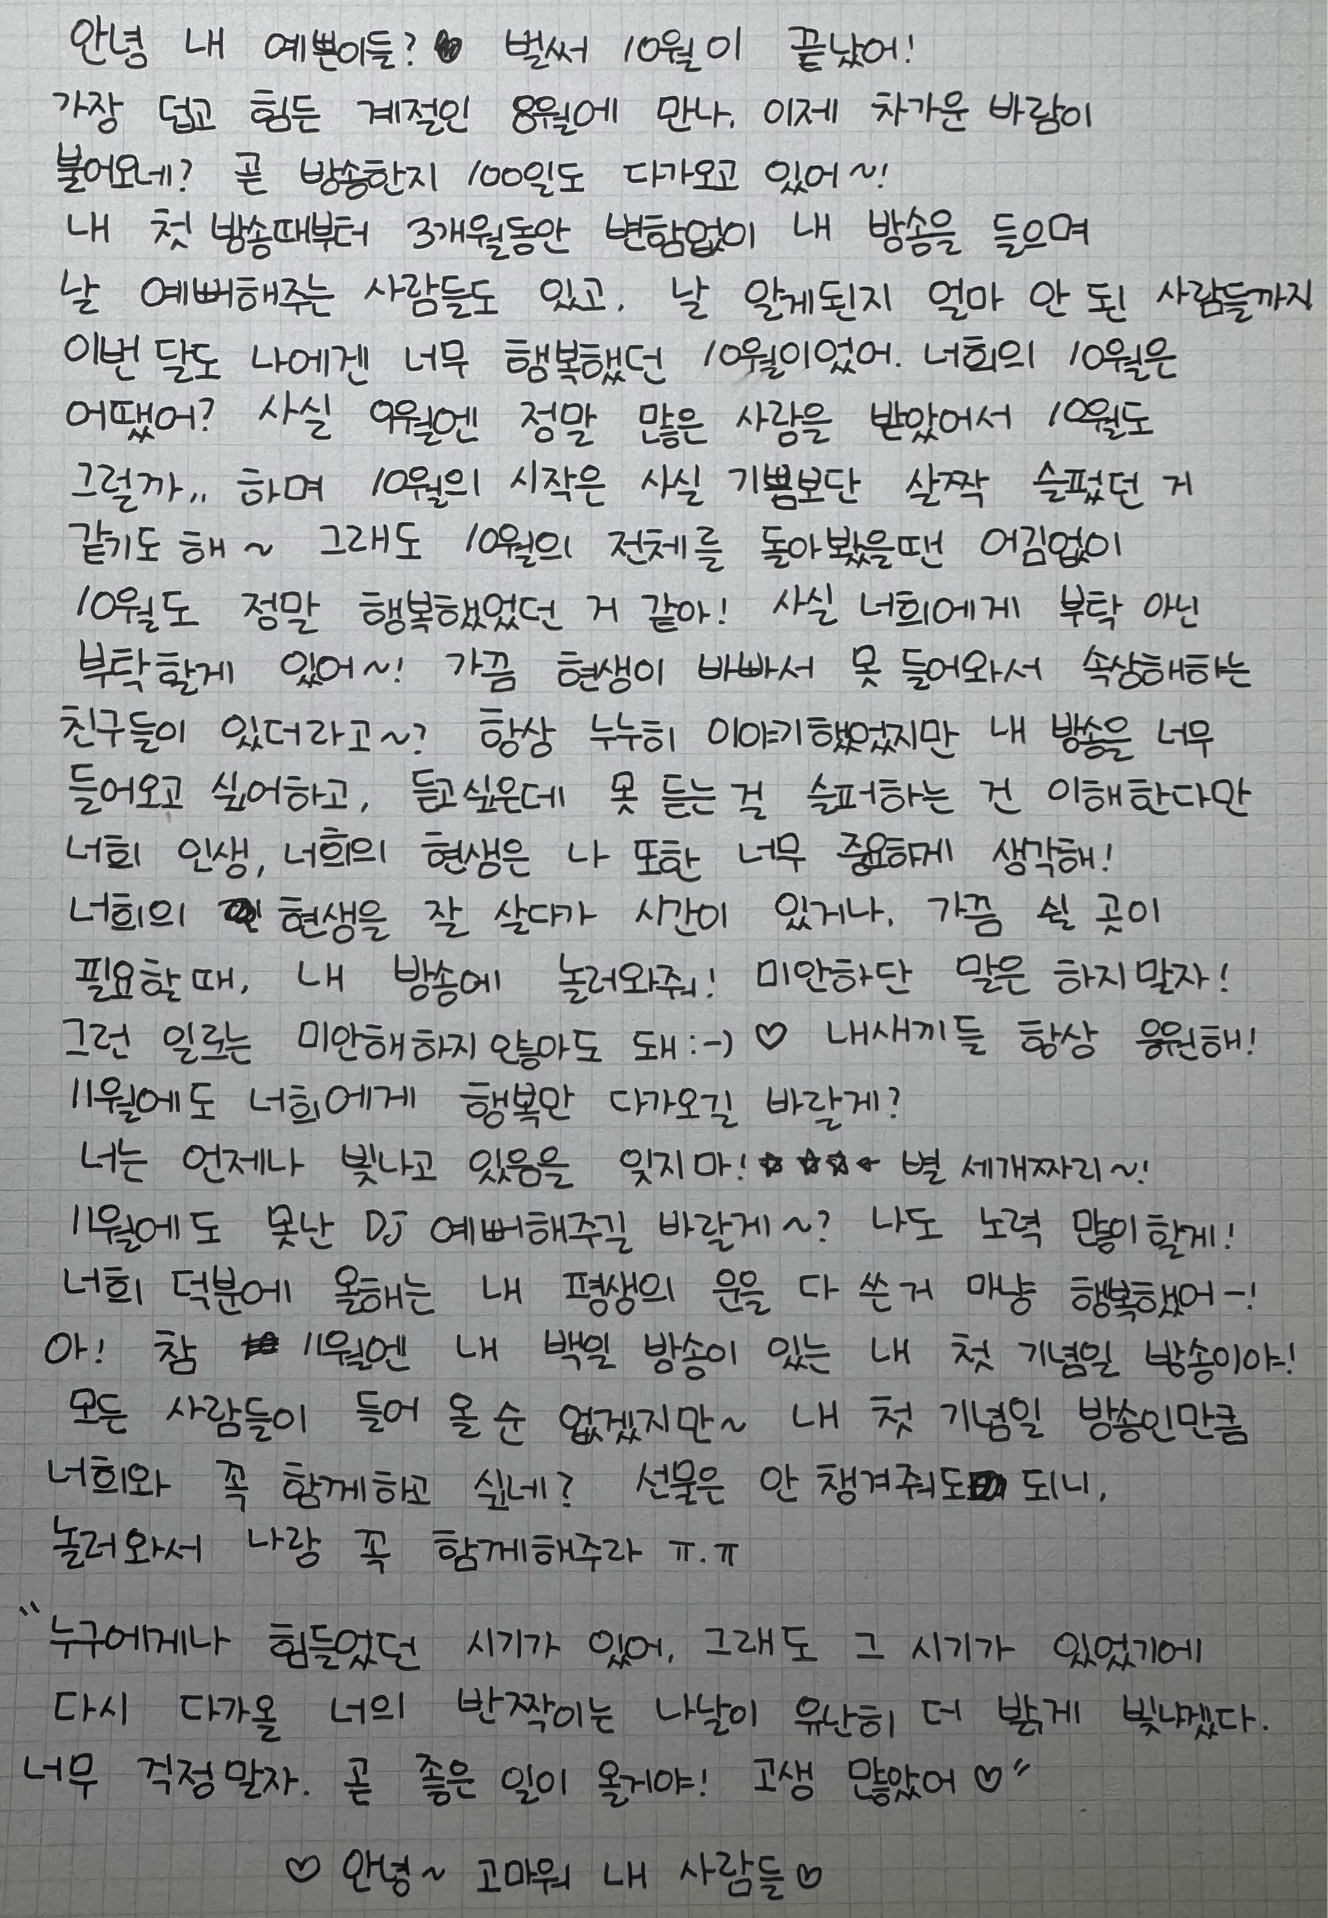 안녕 내 예쁜이들? ♥ 벌써 10월이 끝났어!
가장 덥고 힘든 계절인 8월에 만나, 이제 차가운 바람이
불어오네? 곧 방송한지 100일도 다가오고 있어~!
내 첫 방송때부터 3개월동안 변함없이 내 방송을 들으며
날 예뻐해주는 사람들도 있고, 날 알게된지 얼마 안 된 사람들까지
이번 달도 나에겐 너무 행복했던 10월이었어. 너희의 10월은
어땠어? 사실 9월엔 정말 많은 사랑을 받았어서 10월도
그럴까,, 하며 10월의 시작은 사실 기쁨보단 살짝 슬펐던 거
같기도 해~ 그래도 10월의 전체를 돌아봤을땐 어김없이
10월도 정말 행복했었던 거 같아! 사실 너희에게 부탁 아닌
부탁할게 있어~! 가끔 현생이 바빠서 못 들어와서 속상해하는
친구들이 있더라고~? 항상 누누히 이야기했었지만 내 방송을 너무
들어오고 싶어하고, 듣고싶은데 못 듣는 걸 슬퍼하는 건 이해한다만
너희 인생, 너희의 현생은 나 또한 너무 중요하게 생각해!
너희의 현생을 잘 살다가 시간이 있거나, 가끔 쉴 곳이
필요할때, 내 방송에 놀러와줘! 미안하단 말은 하지말자!
그런 일로는 미안해하지 않아도 돼:-) ♡ 내새끼들 항상 응원해!
11월에도 너희에게 행복만 다가오길 바랄게?
너는 언제나 빛나고 있음을 잊지마! ★ ☆ ☆ ← 별 세개짜리~!
11월에도 못난 DJ 예뻐해주길 바랄게~? 나도 노력 많이할게!
너희 덕분에 올해는 내 평생의 운을 다 쓴거 마냥 행복했어-!
아! 참 11월엔 내 백일 방송이 있는 내 첫 기념일 방송이야!
모든 사람들이 들어 올 순 없겠지만~ 내 첫 기념일 방송인만큼
너희와 꼭 함께하고 싶네? 선물은 안 챙겨줘도 되니,
놀러와서 나랑 꼭 함께해주라 ㅠ.ㅠ
"누구에게나 힘들었던 시기가 있어, 그래도 그 시기가 있었기에
다시 다가올 너의 반짝이는 나날이 유난히 더 밝게 빛나겠다.
너무 걱정말자. 곧 좋은 일이 올거야! 고생 많았어 ♡"
♡ 안녕~ 고마워 내 사람들 ♡